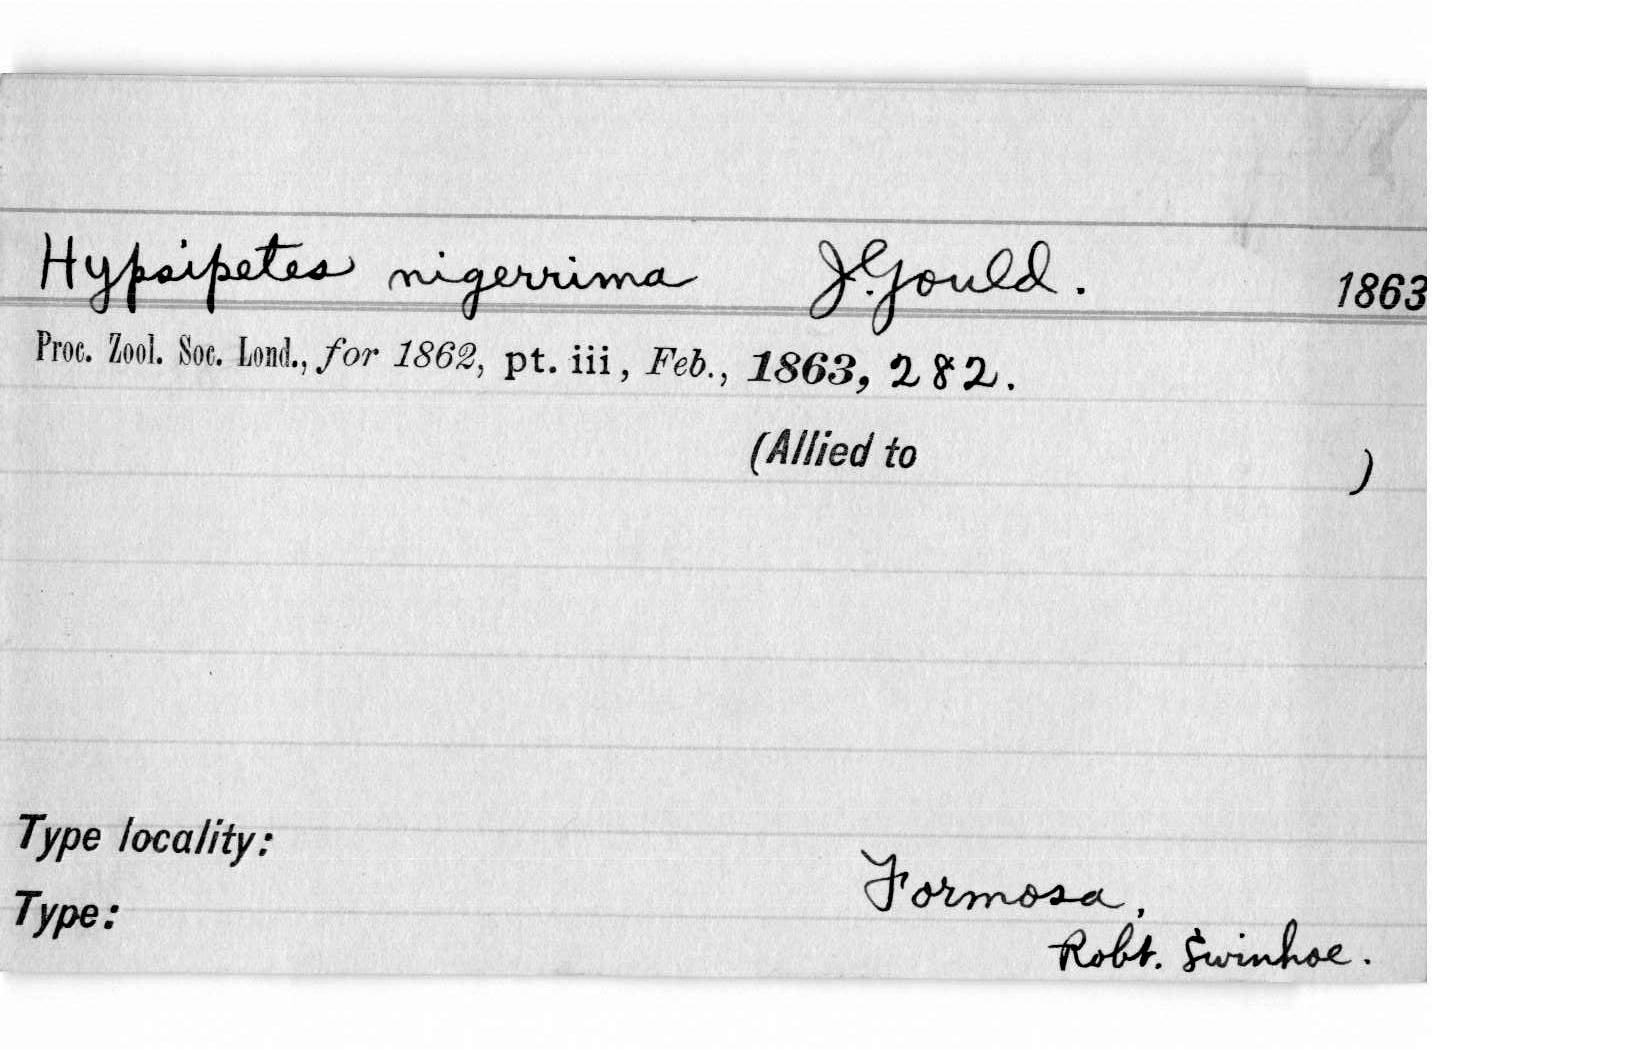 Hypsipetes nigerrima J. Gould. 1863
Proc. Zool. Soc. Lond., for 1862, pt. iii, Feb., 1863, 282.
(Allied to )
Type locality:
Formosa,
Type:
Robt. Swinhoe.